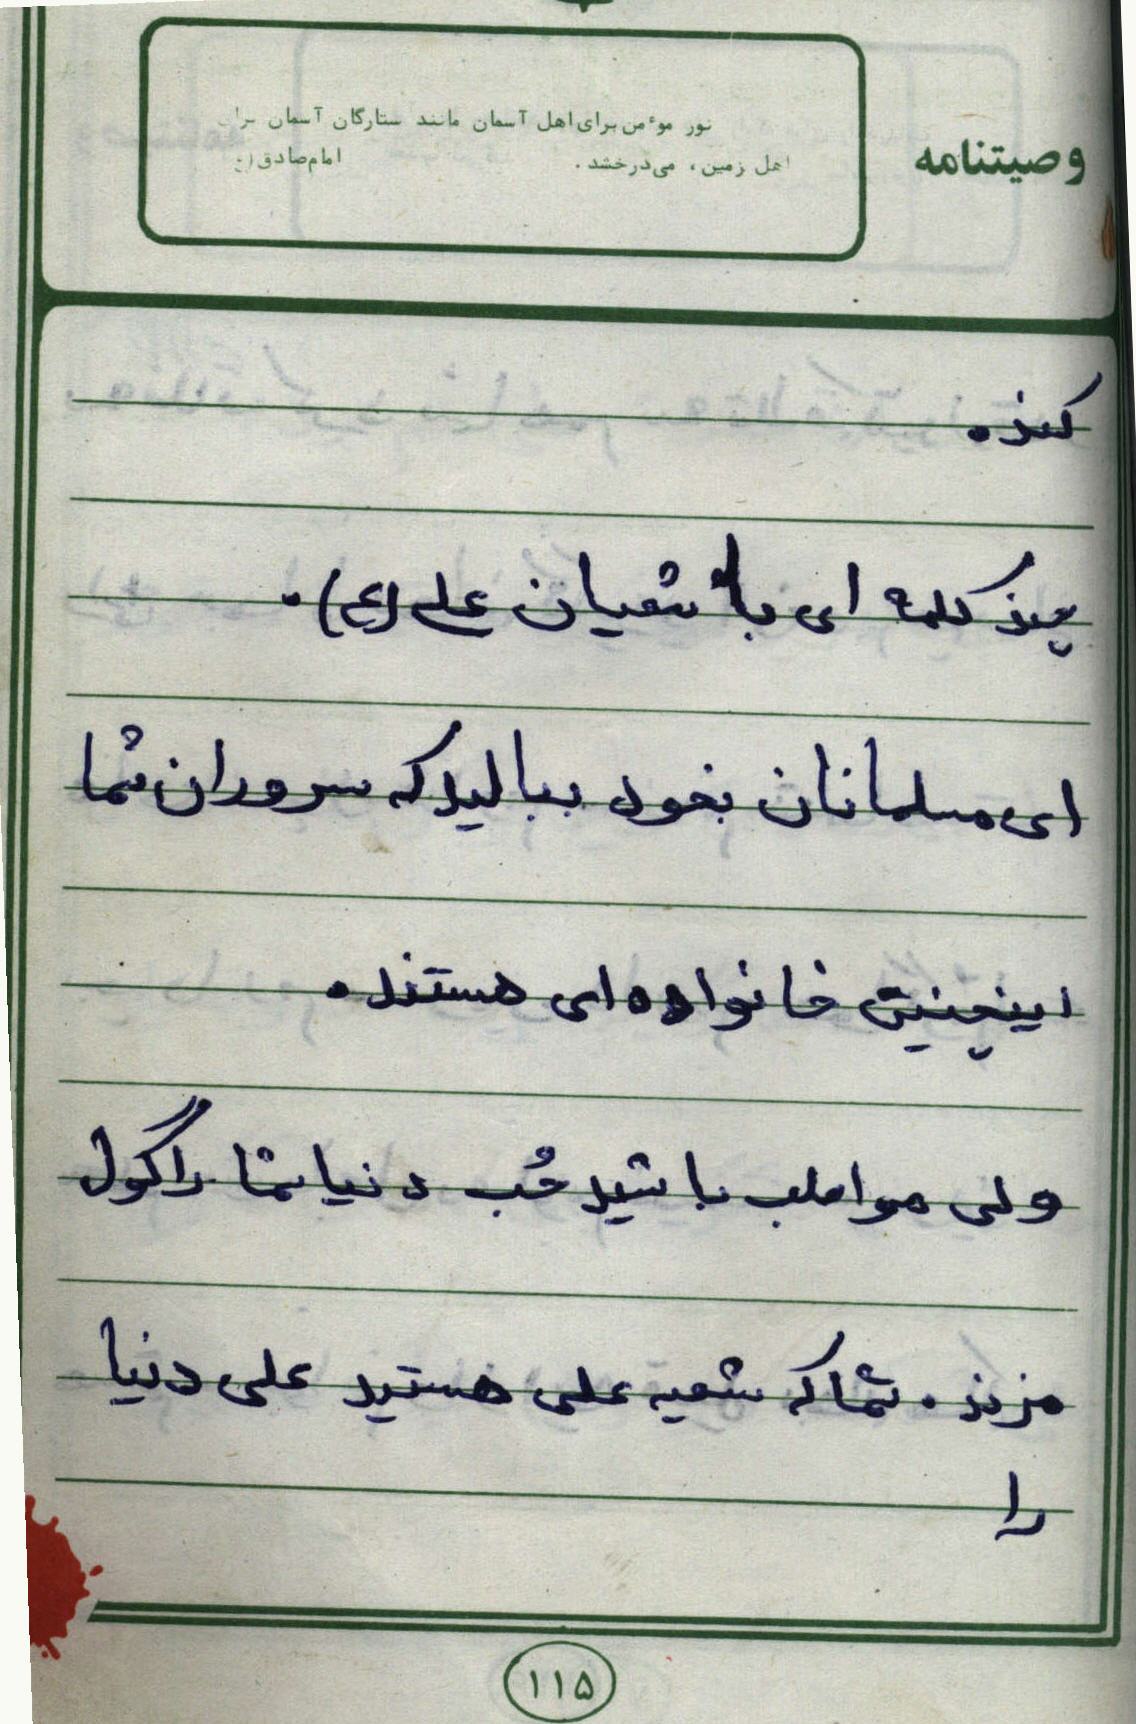 وصیتنامه
نور موءمن برای اهل آسمان مانند ستارگان آسمان برای
اهل زمین، می‌درخشد. امام صادق (ع)
کند.
چند کلمه ای با شعیان علی (ع).
ای مسلمانان بخود ببالید که سروران شما
اینچنین خانواده ای هستند.
ولی مواظب باشید حُب دنیا شما را گول
مزند. شما که شعیه علی هستید علی دنیا
را
۱۱۵